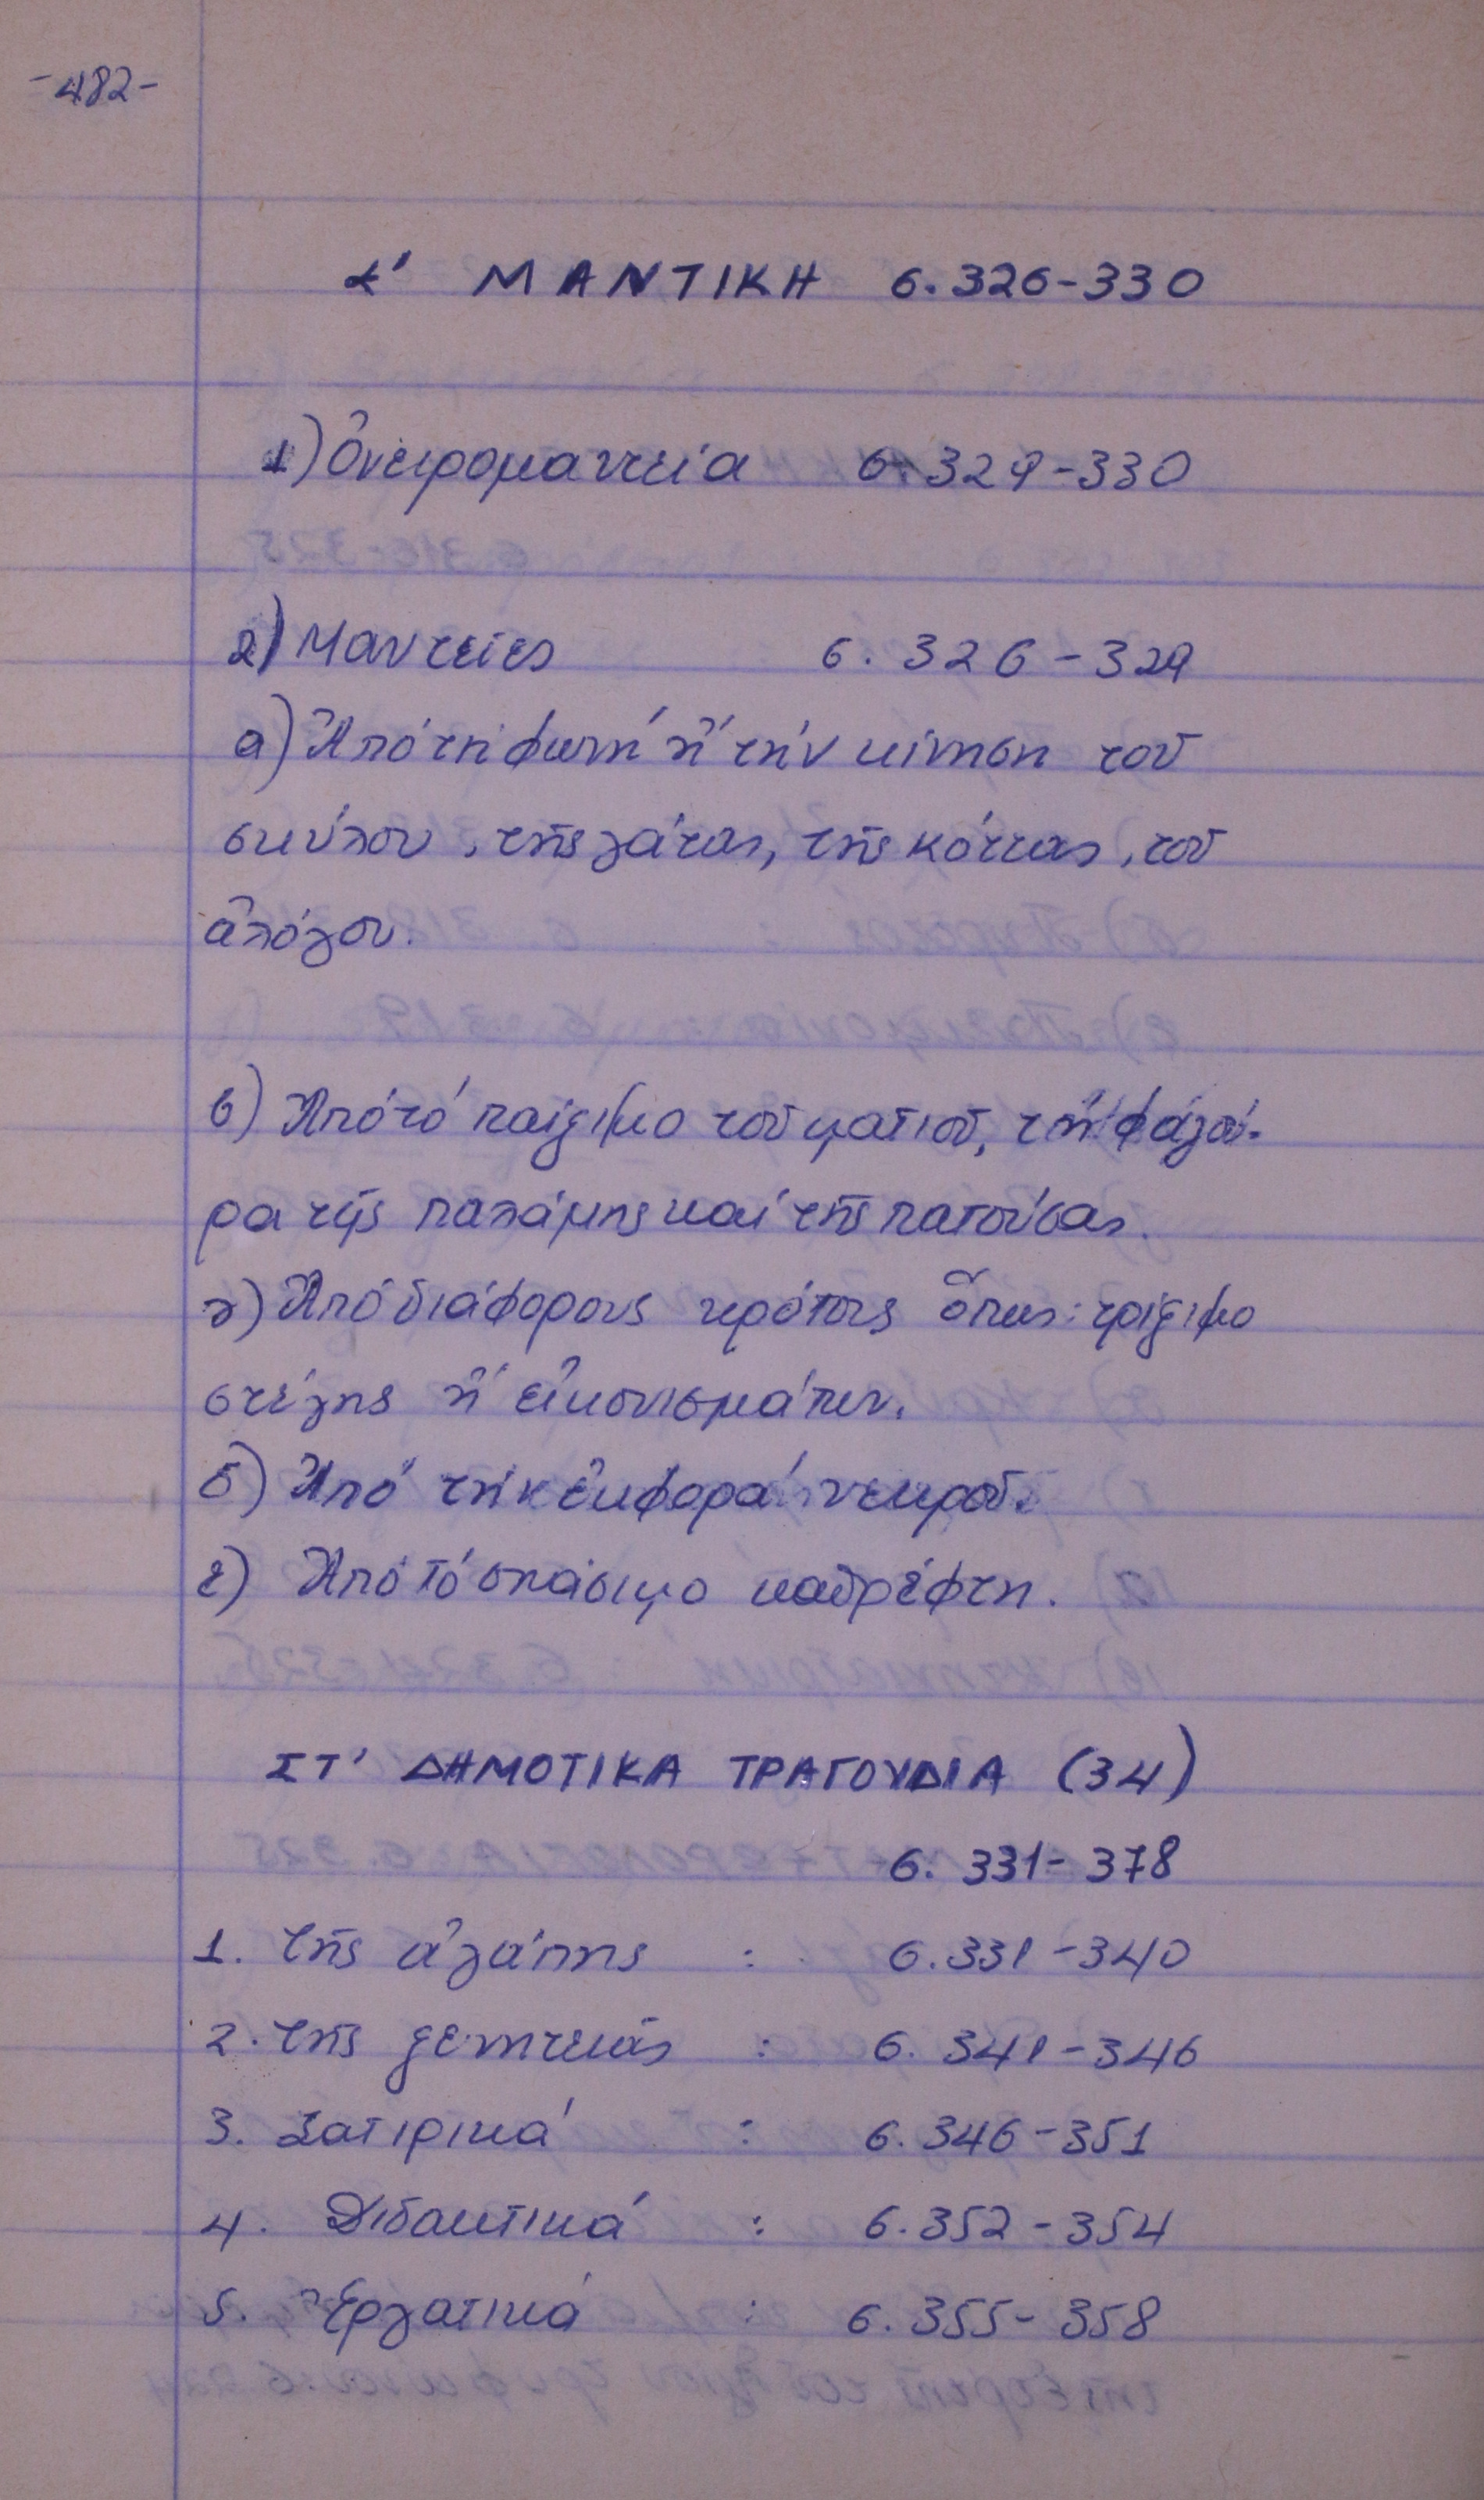 -482-
Σ' ΜΑΝΤΙΚΗ σ. 326-330
1) Ὀνειρομαντεία σ. 329-330
2) Μαντείες σ. 326-329
α) Ἀπό τή φωνή ἤ τήν κίνηση τοῦ
σκύλου, τῆς γάτας, τῆς κόττας, τοῦ
ἀλόγου.
β) Ἀπό τό παίξιμο τοῦ ματιοῦ, τή φαγού-
ρα τῆς παλάμης καί τῆς πατούσας.
γ) Ἀπό διάφορους κρότους ὅπως: τρίξιμο
στέγης ἤ εἰκονισμάτων.
δ) Ἀπό τήν ἐκφορά νεκροῦ.
ε) Ἀπό τό σπάσιμο καθρέφτη.
ΣΤ' ΔΗΜΟΤΙΚΑ ΤΡΑΓΟΥΔΙΑ (34)
σ. 331-378
1. τῆς ἀγάπης : σ. 331-340
2. τῆς ξενητειᾶς : σ. 341-346
3. Σατιρικά : σ. 346-351
4. Διδακτικά : σ. 352-354
5. Ἐργατικά : σ. 355-358